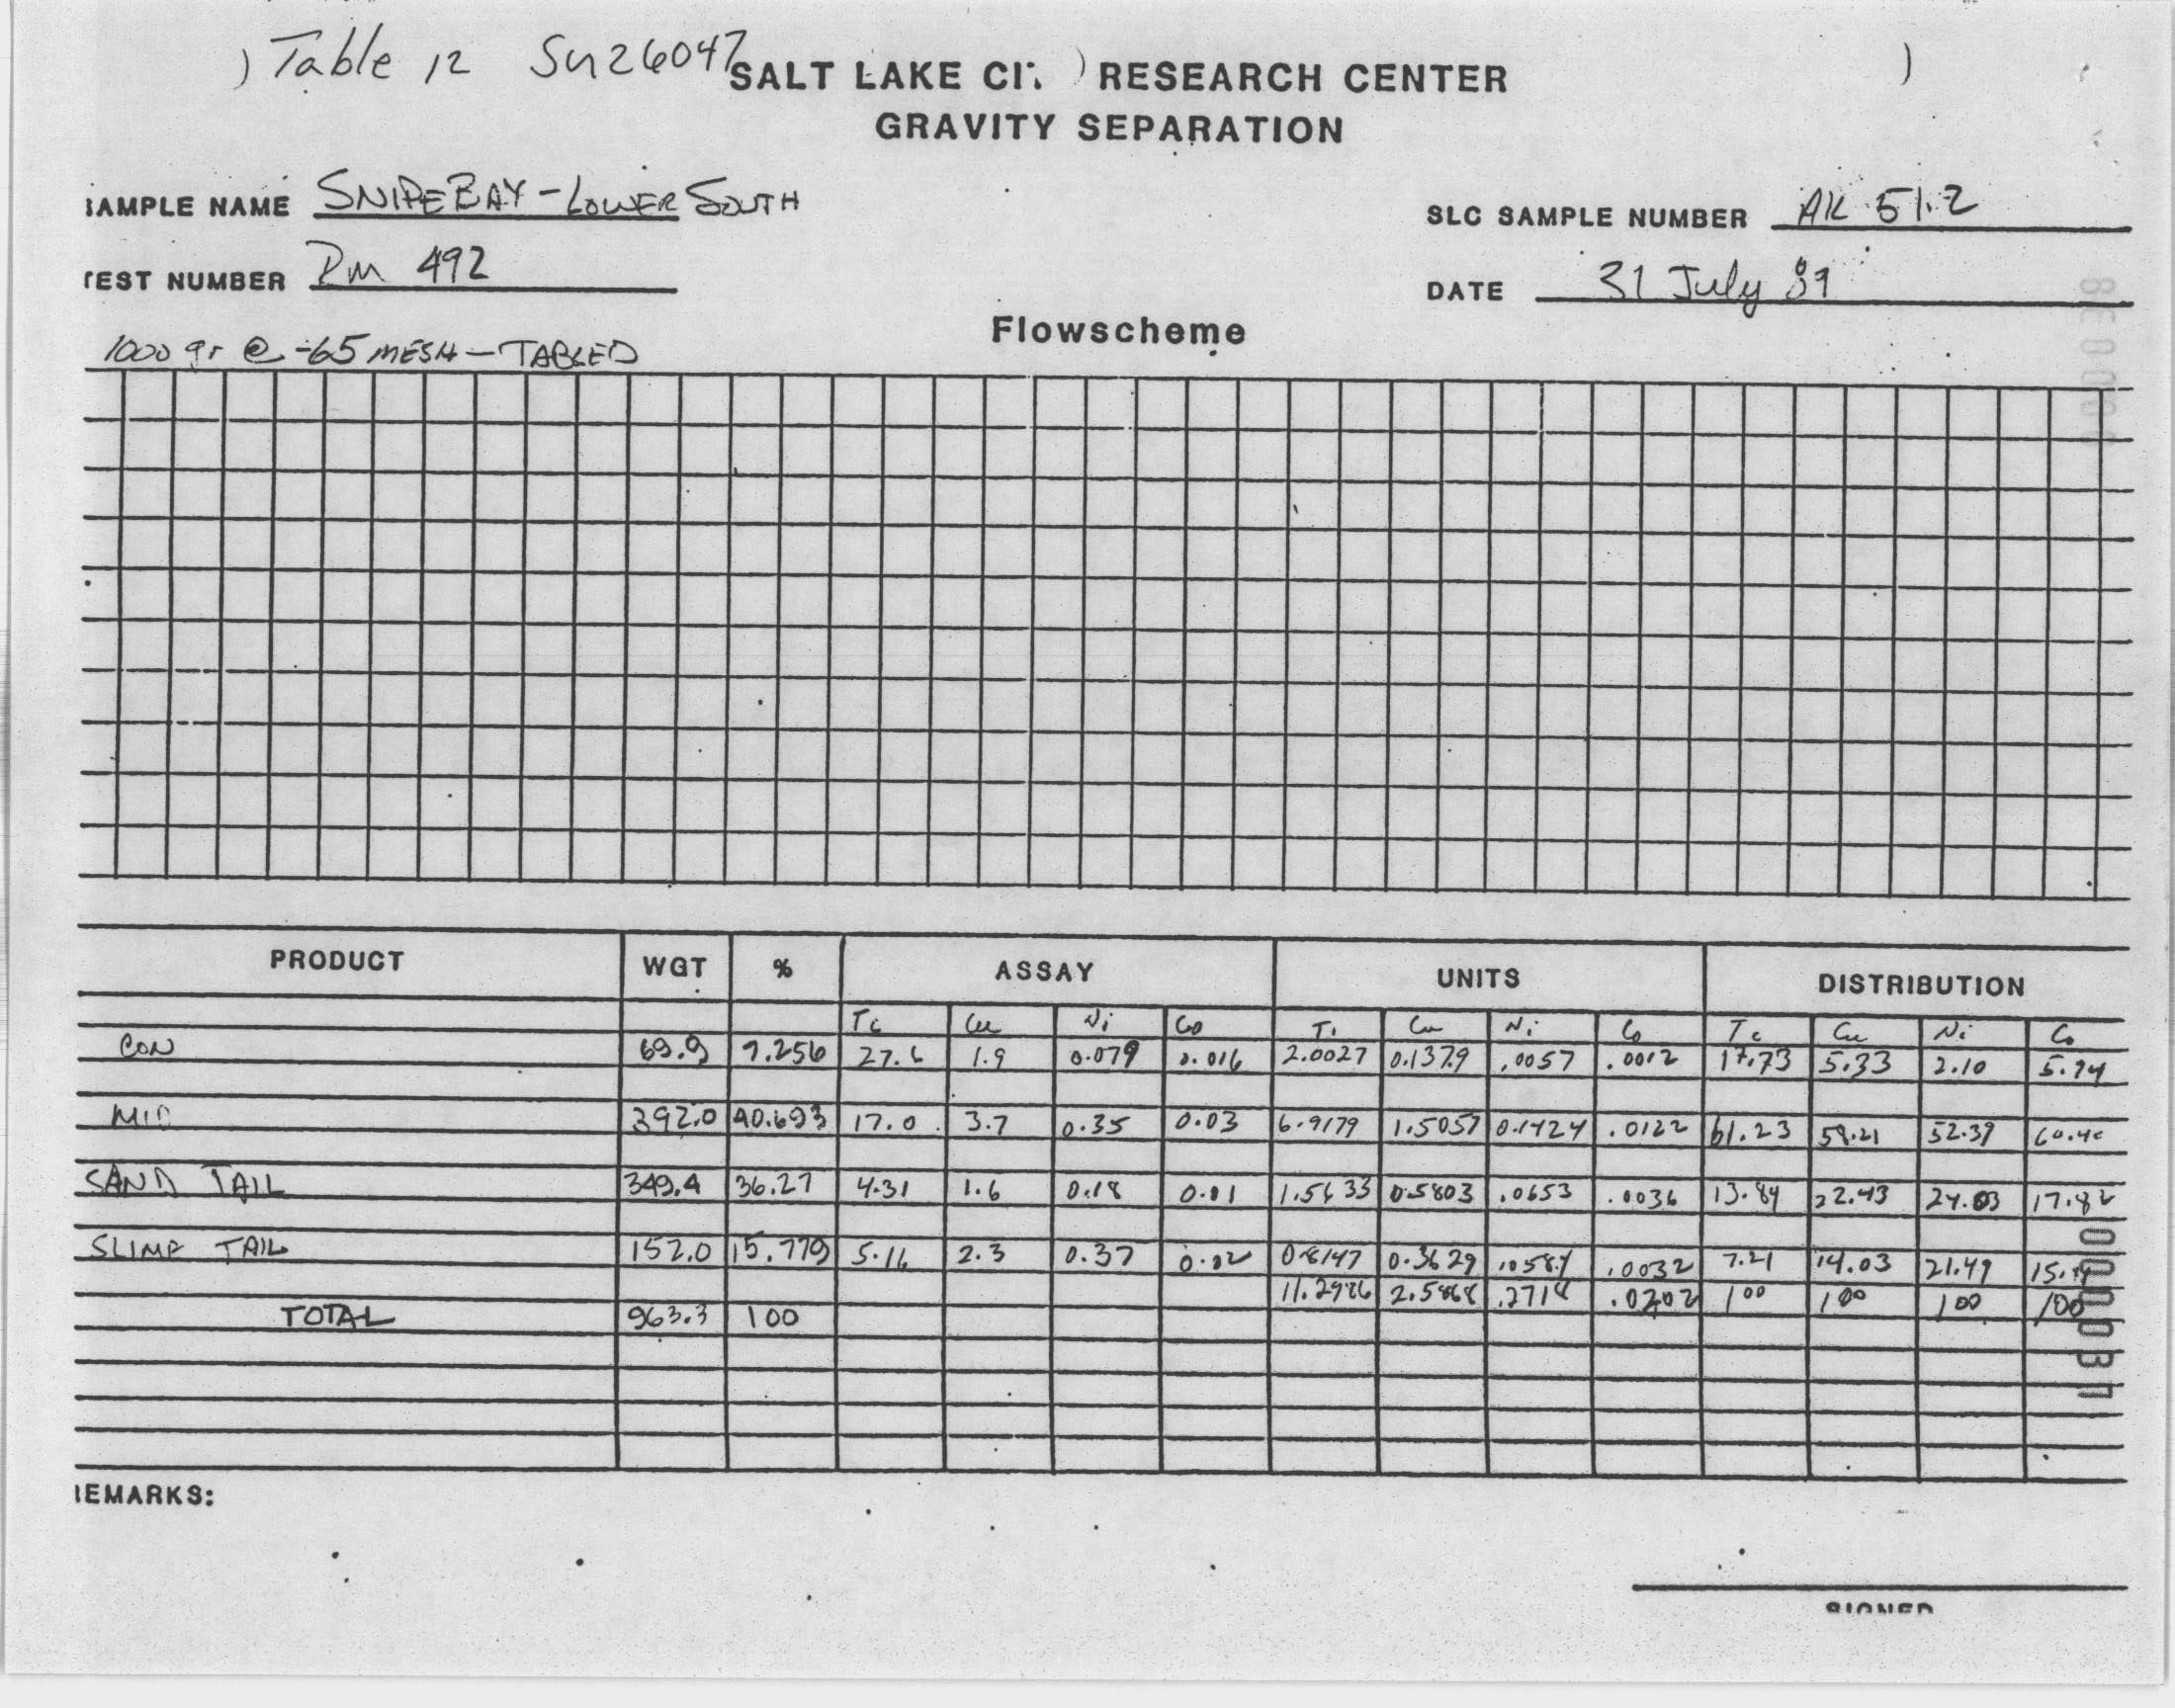 ) Table 12 Sn26047
SALT LAKE CI. ) RESEARCH CENTER )
GRAVITY SEPARATION
SAMPLE NAME SNIPE BAY - LOWER SOUTH
SLC SAMPLE NUMBER AK 51.2
TEST NUMBER DM 492
DATE 31 July 89
Flowscheme
1000 gr @ -65 MESH - TABLED
PRODUCT WGT % ASSAY UNITS DISTRIBUTION
Cu Ni Co Cu Ni Co Cu Ni Co
CON 69.9 7.256 27.6 1.9 0.079 0.016 2.0027 0.1379 .0057 .0012 17.73 5.33 2.10 5.94
MID 392.0 40.693 17.0 3.7 0.35 0.03 6.9179 1.5057 0.1424 .0122 61.23 58.21 52.39 60.40
SAND TAIL 349.4 36.27 4.31 1.6 0.18 0.01 1.5633 0.5803 .0653 .0036 13.84 22.43 24.03 17.82
SLIME TAIL 152.0 15.779 5.16 2.3 0.37 0.02 0.8147 0.3629 .0584 .0032 7.21 14.03 21.49
11.2986 2.5868 .2718 .0202 100 100 100 100
TOTAL 963.3 100
REMARKS:
SIGNED